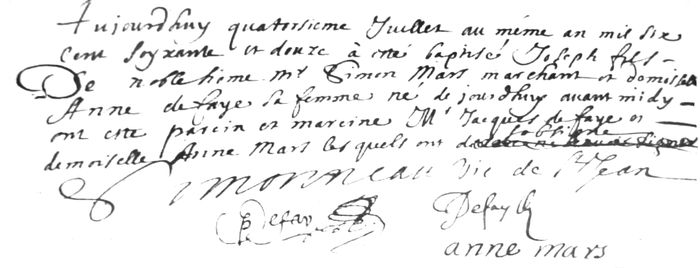 Aujourdhuy quatorsieme Juillet au même an mil six
cent soyxante et douze à esté baptisé Joseph fils
De noble home Mr Simon Mars marchant et demoiselle
Anne de faye sa femme né de jourdhuy avant midy
ont esté parein et mareine Mr Jacques de faye et
demoiselle Anne Mars les quels ont
Simonneau vic de St Jean
Defay
Defaye
anne mars